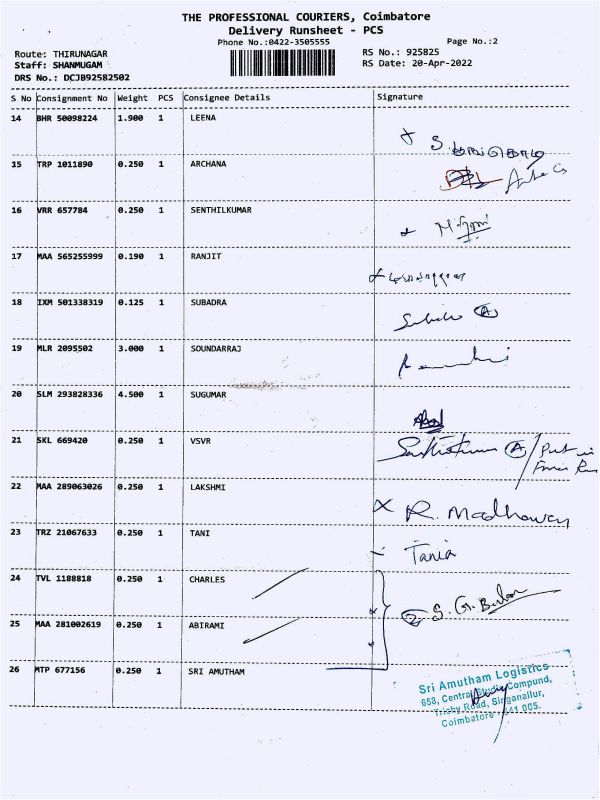 THE PROFESSIONAL COURIERS, Coimbatore
Delivery Runsheet - PCS
Phone No.:0422-3505555 Page No.:2
Route: THIRUNAGAR RS No.: 925825
Staff: SHANMUGAM RS Date: 20-Apr-2022
DRS No.: DCJB92582502
S No Consignment No Weight PCS Consignee Details Signature
14 BHR 50098224 1.900 1 LEENA
15 TRP 1011890 0.250 1 ARCHANA
16 VRR 657784 0.250 1 SENTHILKUMAR
17 MAA 565255999 0.190 1 RANJIT
18 IXM 501338319 0.125 1 SUBADRA
19 MLR 2095502 3.000 1 SOUNDARRAJ
20 SLM 293828336 4.500 1 SUGUMAR
21 SKL 669420 0.250 1 VSVR
22 MAA 289063026 0.250 1 LAKSHMI
R. Madhavan
23 TRZ 21067633 0.250 1 TANI
Tania
24 TVL 1188818 0.250 1 CHARLES
25 MAA 281002619 0.250 1 ABIRAMI
26 MTP 677156 0.250 1 SRI AMUTHAM
Sri Amutham Logistics
658, Central Studio Compund,
Trichy Road, Singanallur,
Coimbatore - 641 005.